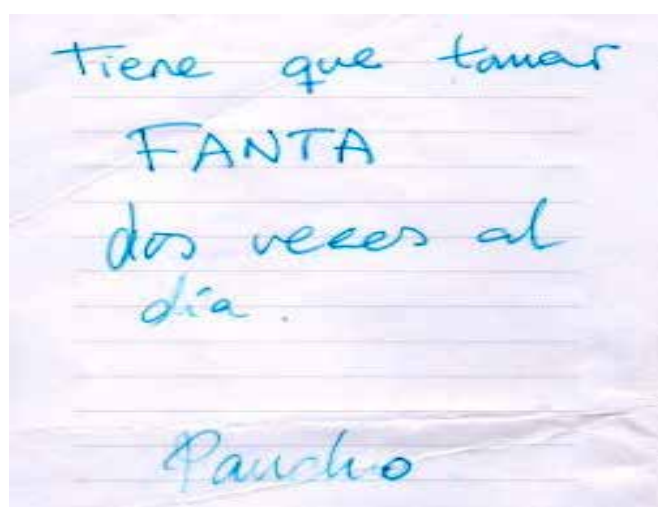 Tiene que tomar
FANTA
dos veces al
día.
Pancho